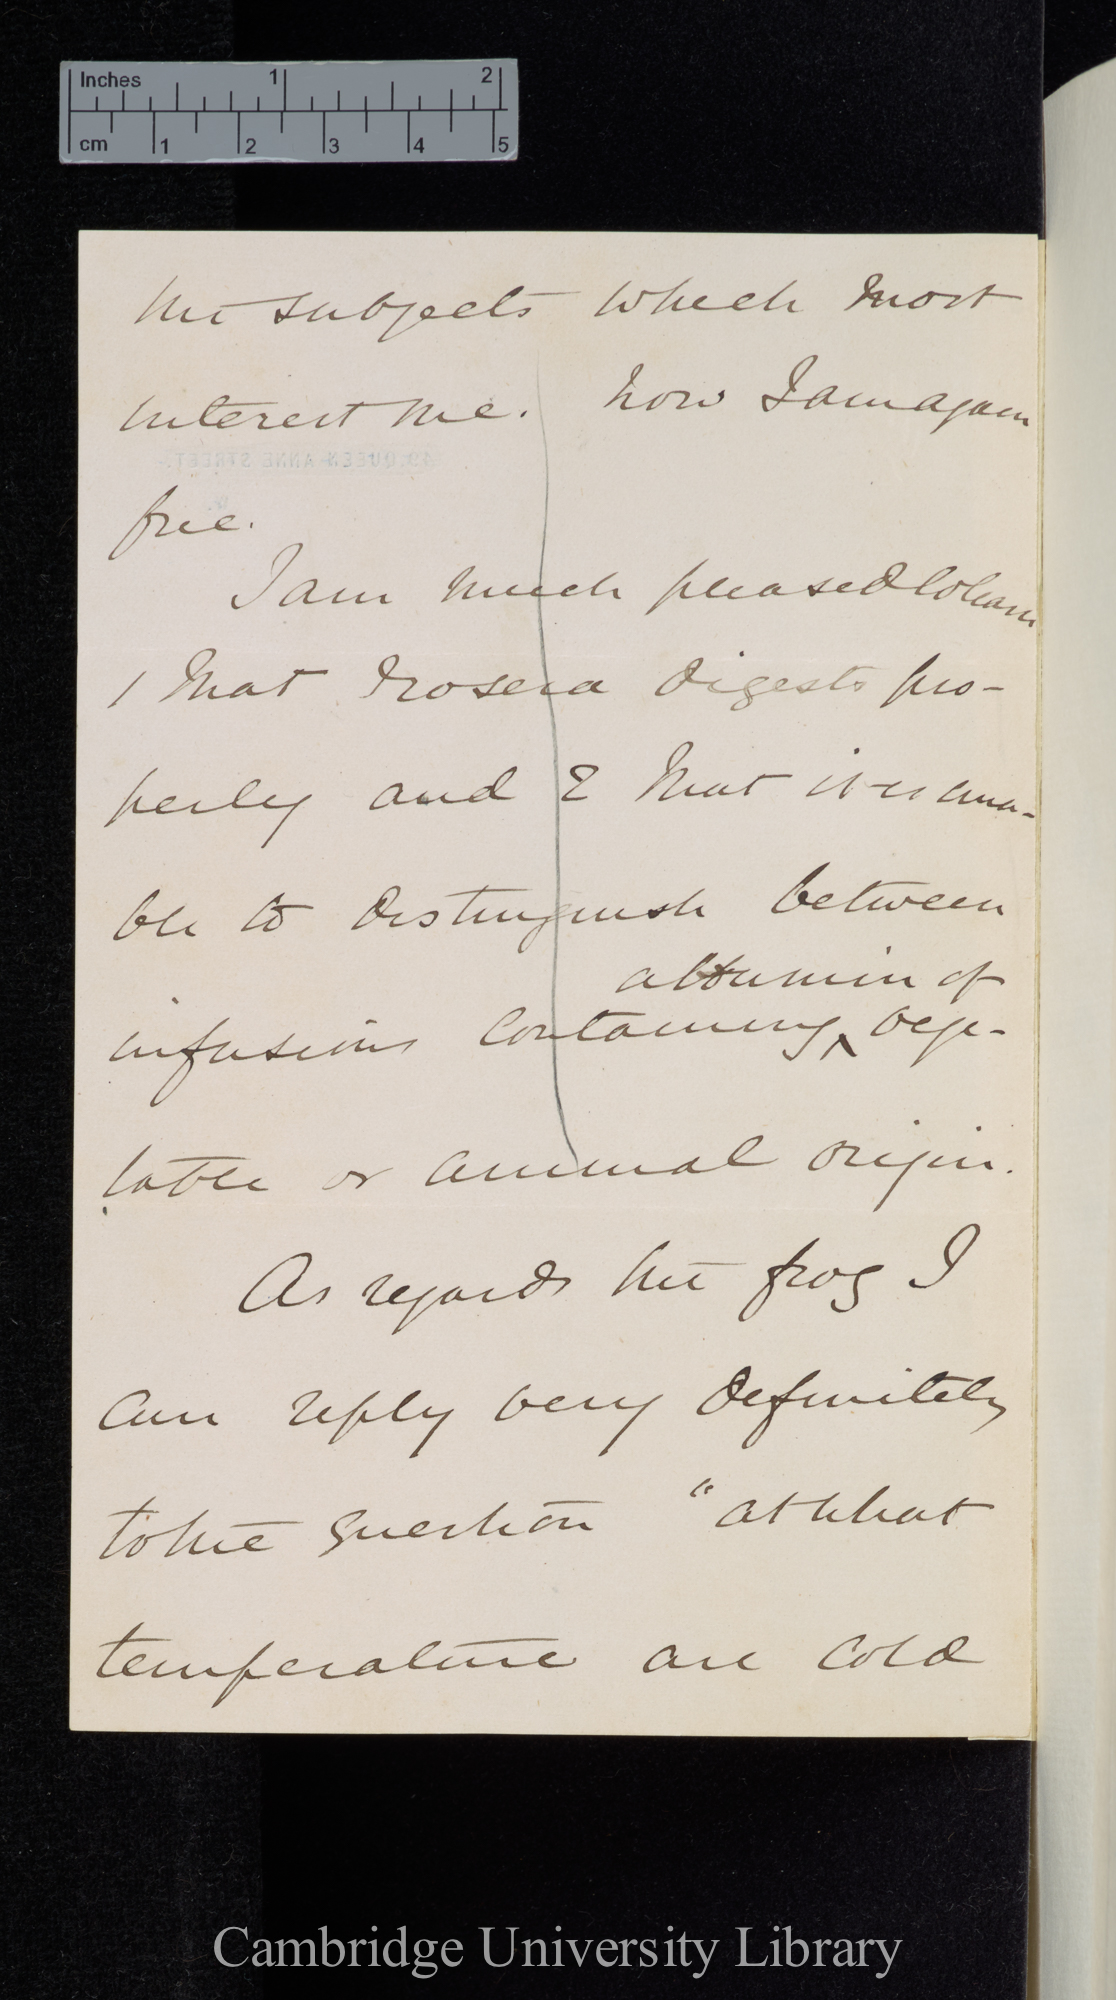 Inches 1 2
cm 1 2 3 4 5
the subjects which most
interest me. Now I am again
49, QUEEN ANNE STREET.
W.
free.
I am much pleased to learn
1 that Drosera digests pro-
perly and 2 that it is una-
ble to distinguish between
albumin of
infusions containing ‸ vege-
table or animal origin.
As regards the frog I
can reply very definitely
to the question "at what
temperature are cold
Cambridge University Library